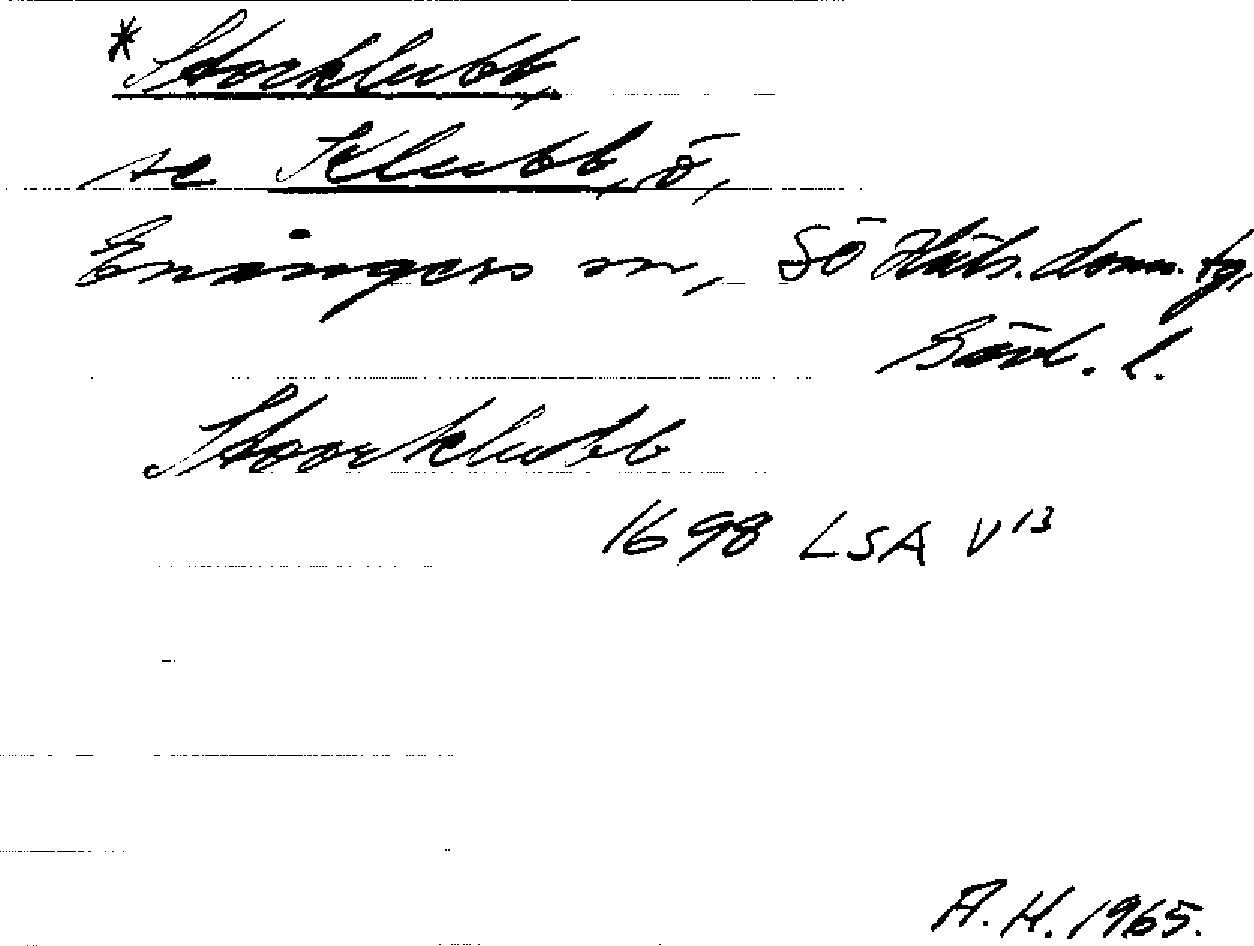 *Storklubb,
se Klubb, ö,
Enångers sn, SÖ Häls. doms. tg,
Gävl. l.
Stoorklubb
1698 LSA V¹³
A. H. 1965.